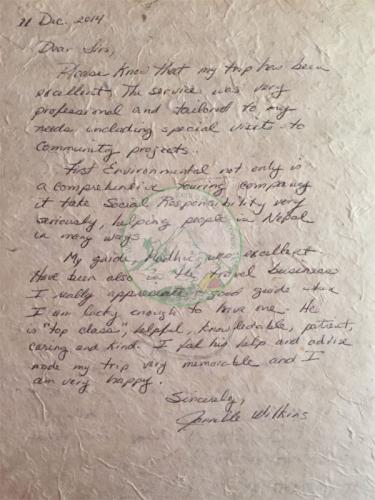 11 Dec. 2014
Dear Sirs,
Please know that my trip has been
excellent. The service was very
professional and tailored to my
needs including special visits to
Community projects.
First Environmental not only is
a comprehensive touring company
it take Social Responsibility very
seriously, helping people in Nepal
in many ways
My guide, Madhu, was excellent
Have been also in the travel business
I really appreciate a good guide when
I am lucky enough to have one. He
is "top class", helpful, knowledable, patient,
caring and kind. I fel his help and advise
made my trip very memorable and I
am very happy.
Sincerely,
Wilkins